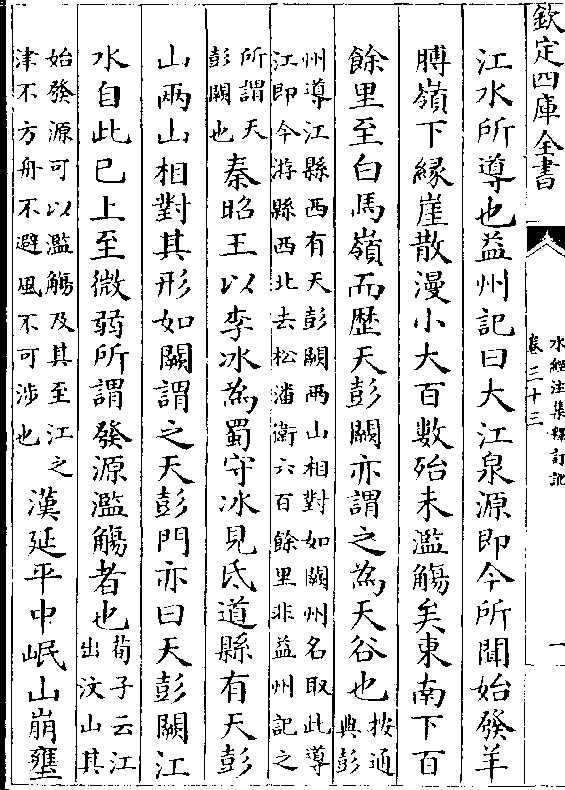 欽定四庫全書
水經注集釋訂訛
卷三十三
一
江水所導也益州記曰大江泉源即今所聞始發羊
膊嶺下緣崖散漫小大百數殆未濫觴矣東南下百
餘里至白馬嶺而歷天彭闕亦謂之為天谷也
按通
典彭
州導江縣西有天彭闕兩山相對如闕州名取此導
江即今游縣西北去松潘衛六百餘里非益州記之
所謂天
彭闕也
秦昭王以李冰為蜀守冰見氏道縣有天彭
山兩山相對其形如闕謂之天彭門亦曰天彭闕江
水自此已上至微弱所謂發源濫觴者也
荀子云江
出汶山其
始發源可以濫觴及其至江之
津不方舟不避風不可涉也
漢延平中岷山崩壅